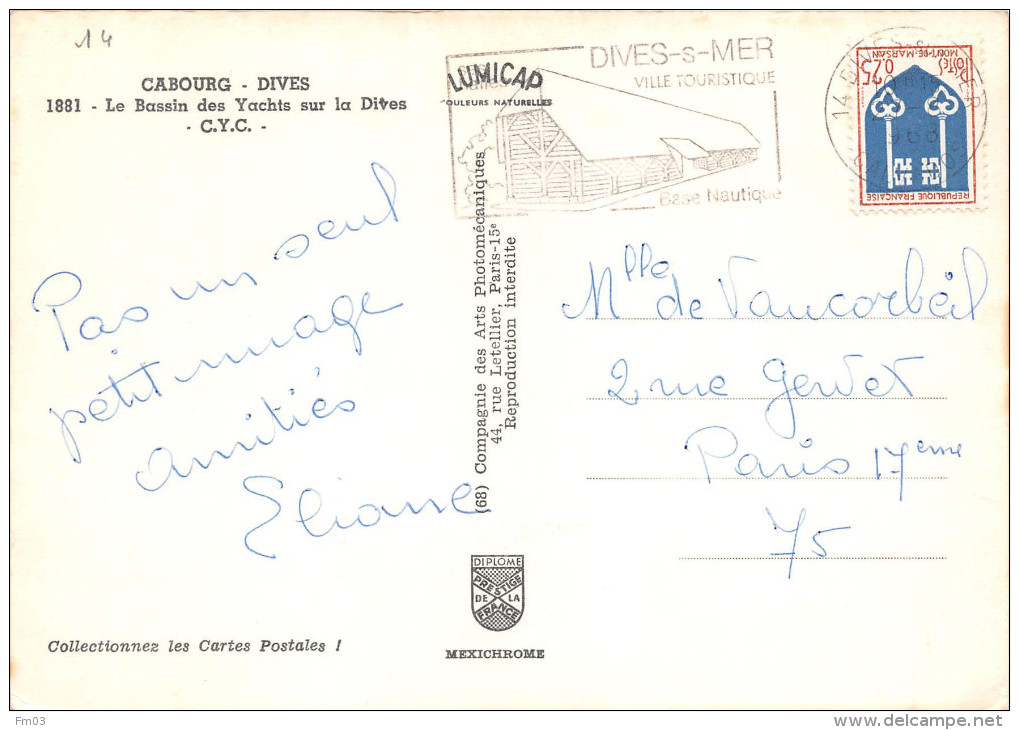 14
CABOURG - DIVES
1881 - Le Bassin des Yachts sur la Dives
- C.Y.C. -
LUMICAP
COULEURS NATURELLES
DIVES-s-MER
VILLE TOURISTIQUE
Base Nautique
14 DIVES-s-MER
CALVADOS
POSTES
0,25
MONT-DE-MARSAN
REPUBLIQUE FRANÇAISE
Pas un seul
petit nuage
amitiés
Eliane
(68) Compagnie des Arts Photomécaniques
44, rue Letellier, Paris-15e
Reproduction interdite
Mlle de Vaucorbeil
2 rue Gervex
Paris 17eme
75
DIPLOME
PRESTIGE
DE LA
FRANCE
MEXICHROME
Collectionnez les Cartes Postales !
Fm03
www.delcampe.net